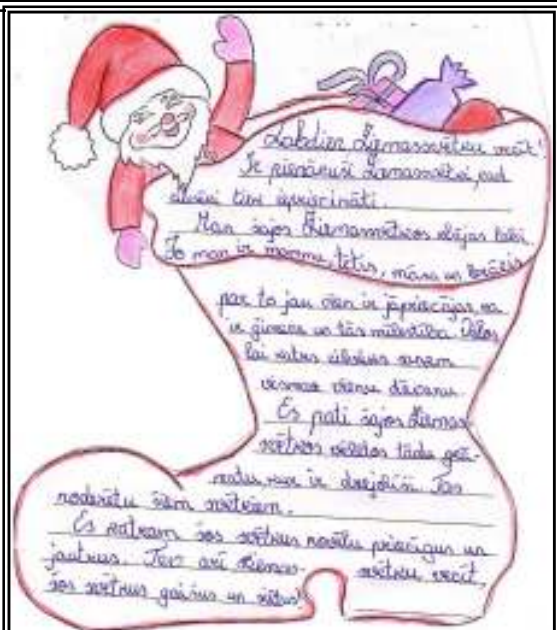 Labdien Ziemassvētku vecīt!
Ir pienākuši Ziemassvētki, kad
tiem iepriecināti.
Man šajos Ziemassvētkos klājas labi.
Jo man ir mamma, tētis, māsa un brālis
par to jau vien ir jāpriecājas, ka
ir ģimene un tās mīlestība. Vēlos
lai katrs cilvēks saņem
vismaz vienu dāvanu.
Es pati šajos Ziemas-
svētkos vēlētos tādu grā-
matu, kur ir dzejolīši. Tas
noderētu šiem svētkiem.
Es katram šos svētkus novēlu priecīgus un
jautrus. Tev arī Ziemas- svētku vecīt,
šos svētkus gaišus un